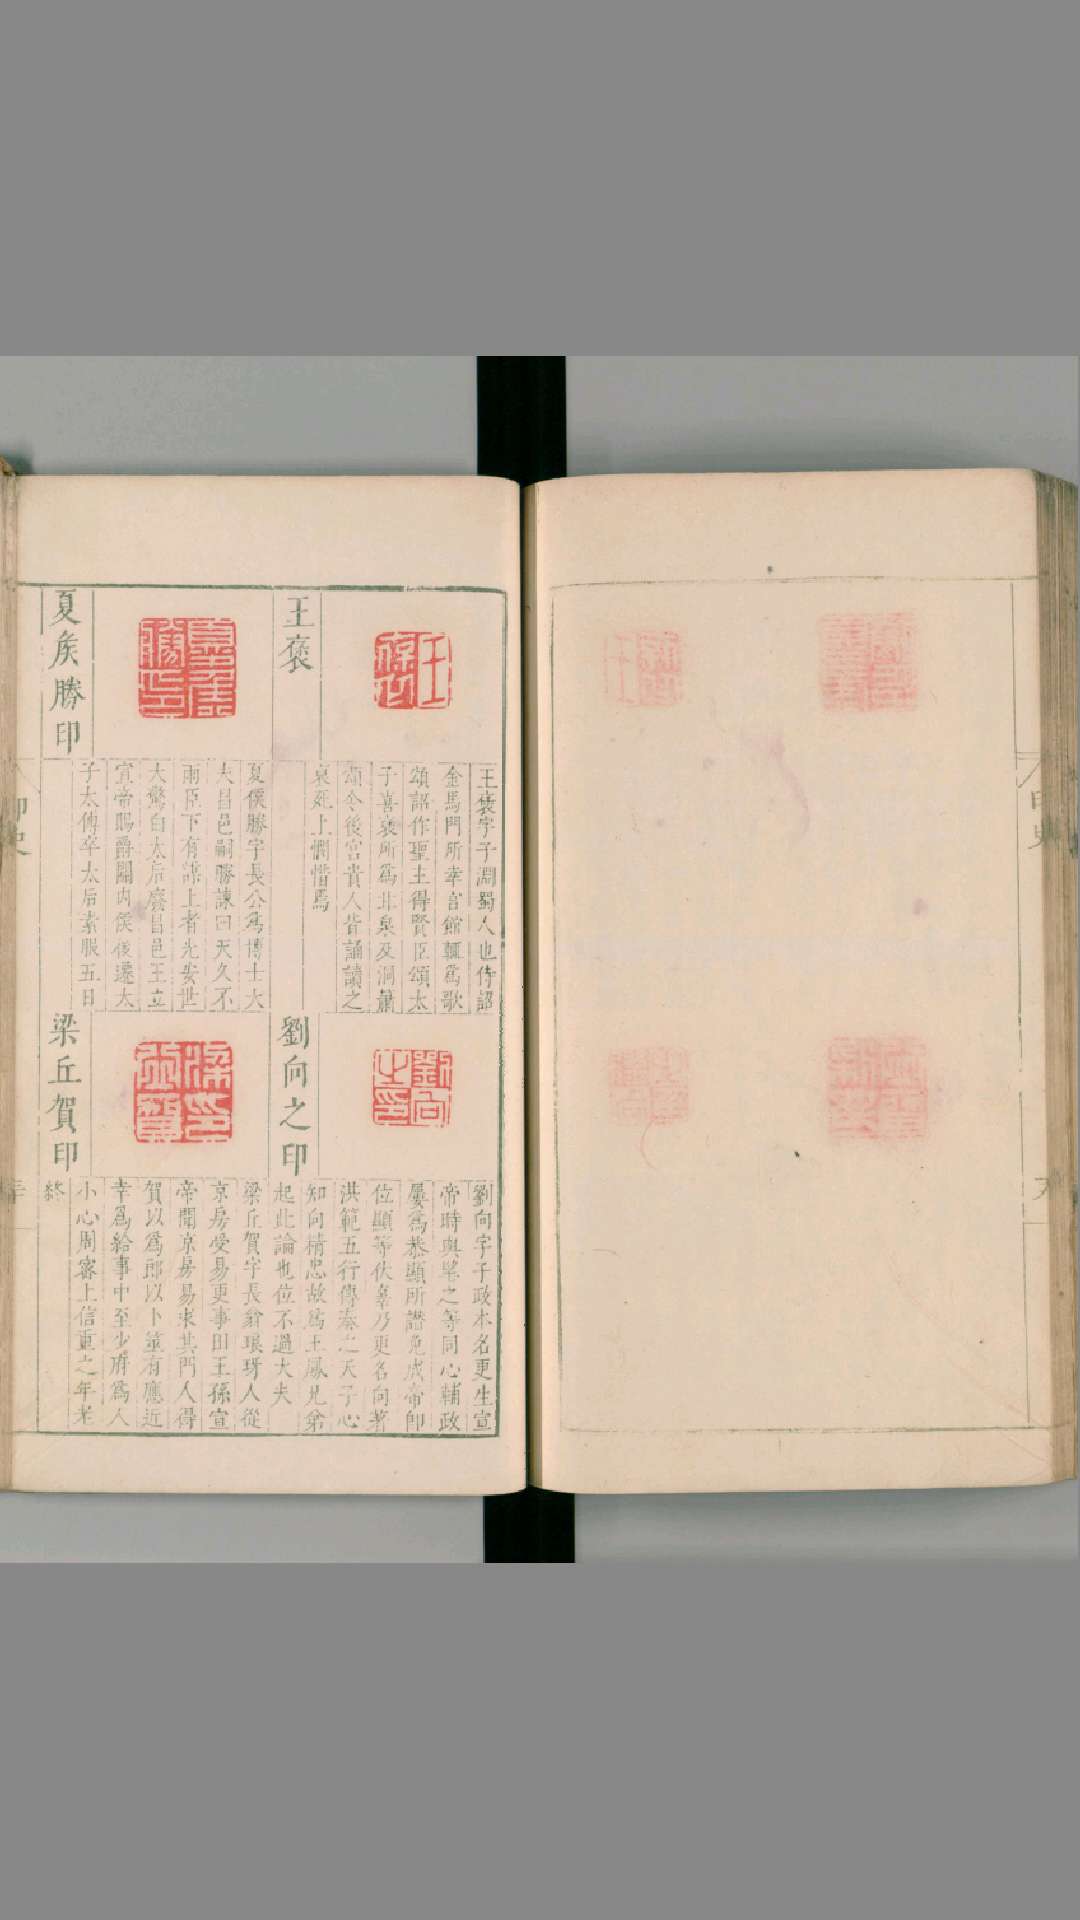 王褒
王褒字子淵蜀人也待詔
金馬門所幸宮館輒爲歌
頌詔作聖主得賢臣頌太
子喜褒所爲甘泉及洞簫
頌令後宮貴人皆誦讀之
褒死上憫惜焉
夏矦勝印
夏侯勝字長公爲博士大
夫昌邑嗣勝諫曰天久不
雨臣下有謀上者光安世
大驚白太后廢昌邑王立
宣帝賜爵關內侯後遷太
子太傅卒太后素服五日
劉向之印
劉向字子政本名更生宣
帝時與望之等同心輔政
屢爲恭顯所譖免成帝卽
位顯等伏辜乃更名向著
洪範五行傳奏之天子心
知向精忠故爲王鳳兄弟
起此論也位不過大夫
梁丘賀印
梁丘賀字長翁琅玡人從
京房受易更事田王孫宣
帝聞京房易求其門人得
賀以爲郎以卜筮有應近
幸爲給事中至少府爲人
小心周密上信重之年老
終
印史